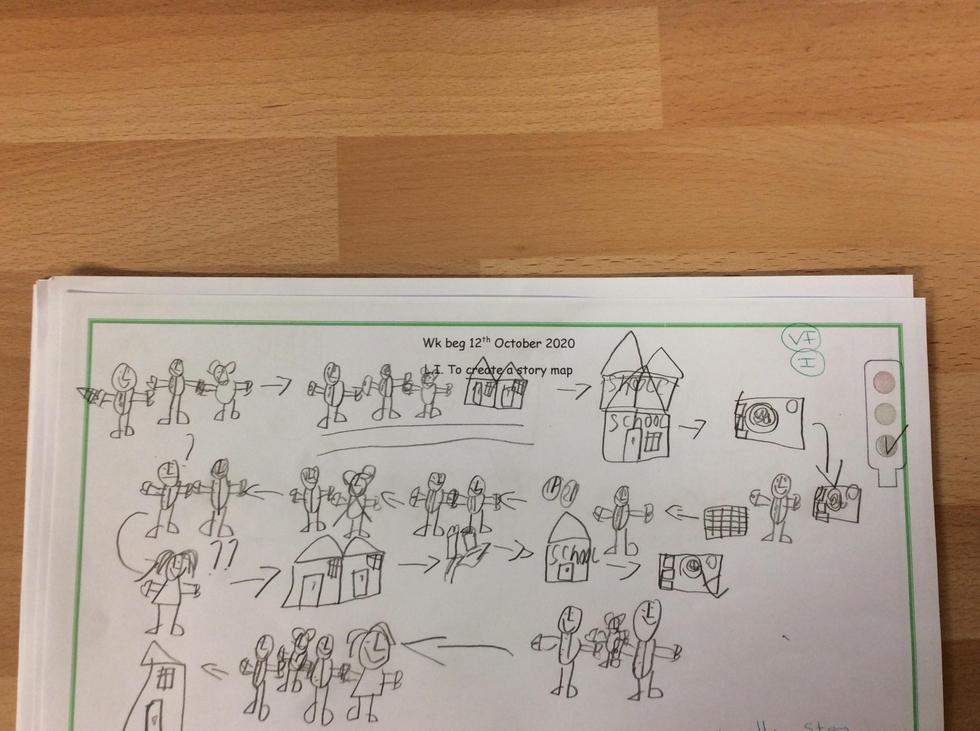 Wk beg 12th October 2020
L.I. To create a story map
VF
I
School
School
?
??
School
the Story